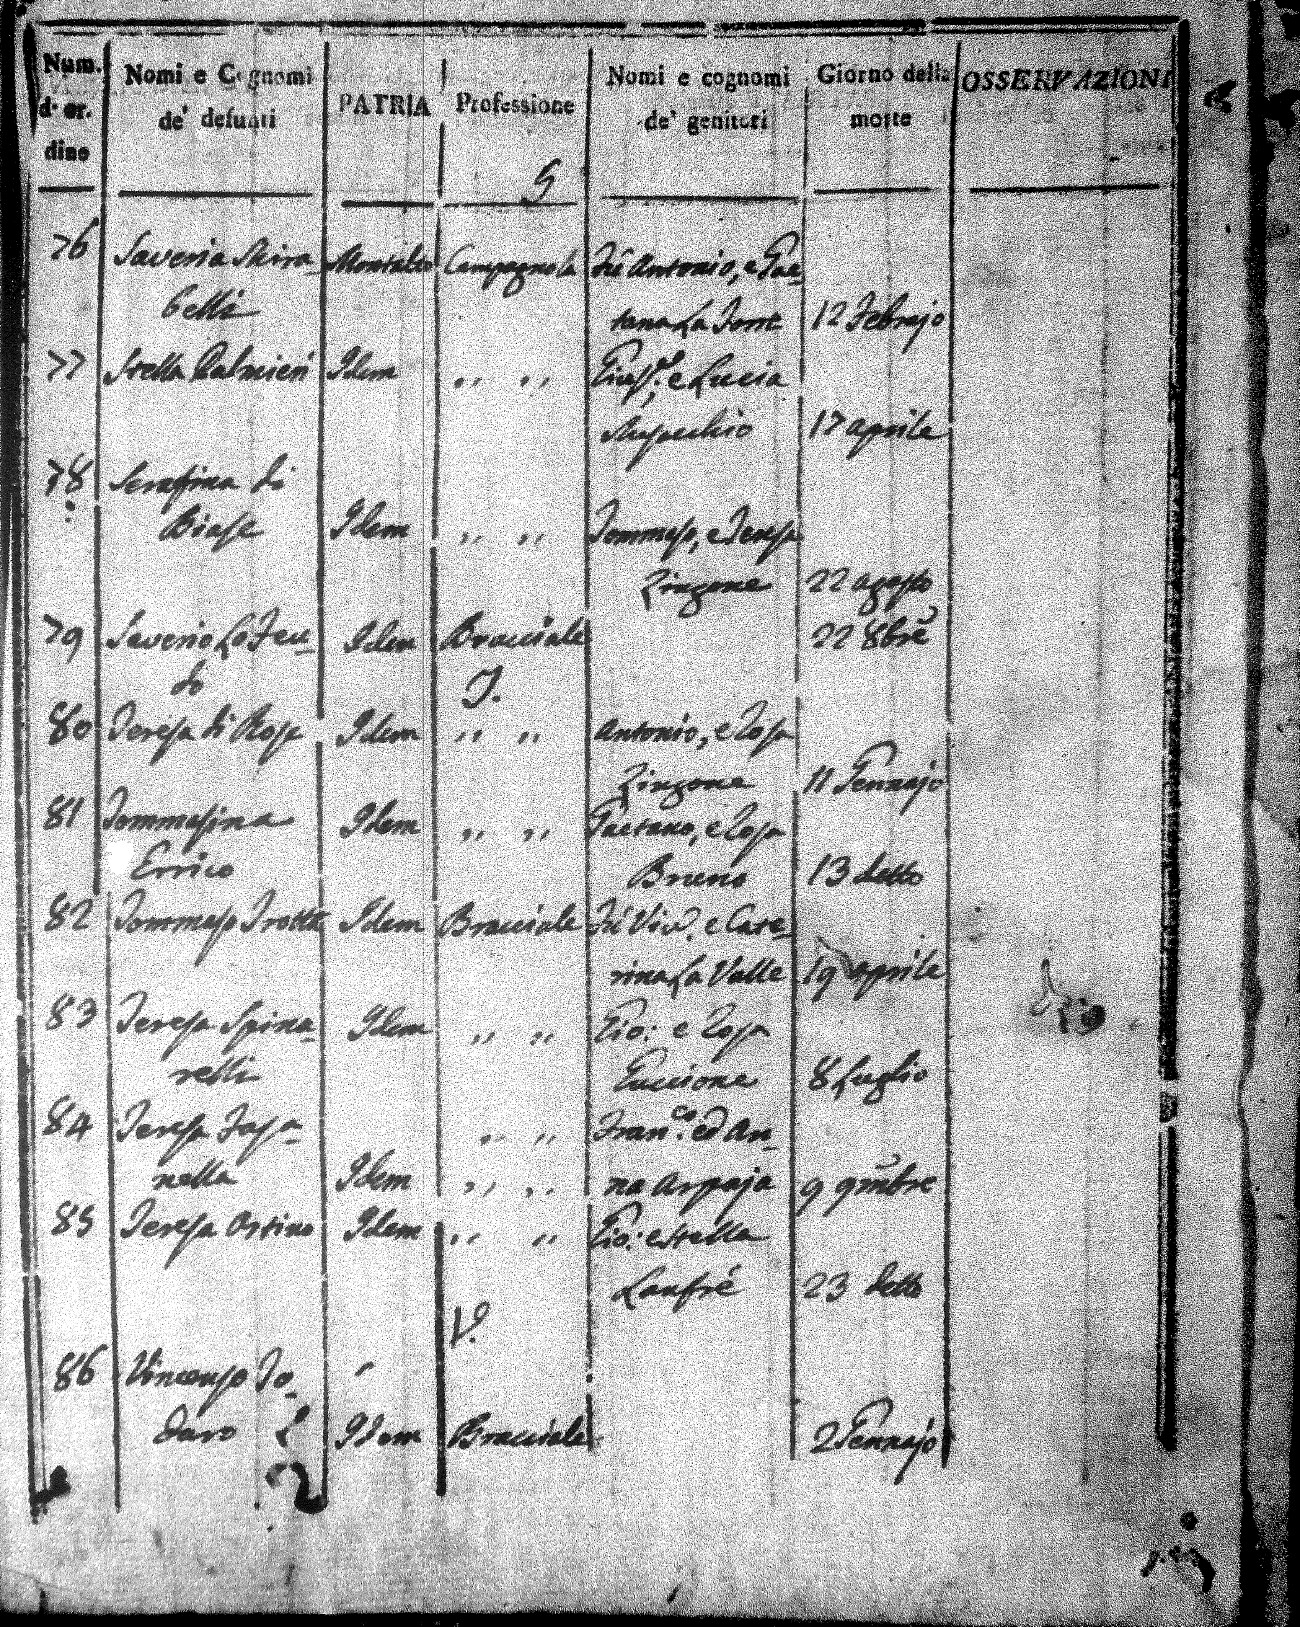 Num. d' or. dino Nomi e Cognomi de' defunti PATRIA Professione Nomi e cognomi de' genitori Giorno della morte OSSERVAZIONI
S
76 Saveria Mira- Montalto Campagnola fù Antonio, e Gae-
belli tana La Font 12 Febrajo
77 Stella Palmieri Idem ,, ,, Giusp.e e Lucia
17 aprile
78 Serafina di
Biase Idem ,, ,, Tommaso, e Teresa
Zingone 22 agosto
79 Saverio Lo Feu- Idem Bracciale 22 8bre
do
T.
80 Teresa di Rosa Idem ,, ,, Antonio, e Rosa
Zingone 11 Gennajo
81 Tommasina Idem ,, ,, Gaetano, e Rosa
Errico Bruno 13 detto
82 Tommaso Trotta Idem Bracciale fù Vin. e Cate-
rina La Valle 19 aprile
83 Teresa Spina- Idem ,, ,, Gio: e Rosa
relli Guccione 8 Luglio
84 Teresa Fasa- ,, ,, Fran.co ed An-
nella Idem ,, ,, na Arpaja 9 9mbre
85 Teresa Orsino Idem ,, ,, Gio: e Stella
Lanfré 23 detto
V.
86 Vincenzo To-
daro Idem Bracciale 2 Gennajo